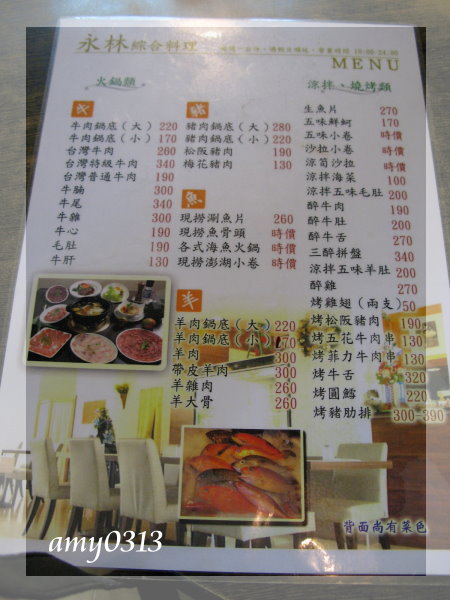 永林綜合料理
營業時間 16:00-24:00
MENU
火鍋類
牛
牛肉鍋底(大) 220
牛肉鍋底(小) 170
台灣牛肉 260
台灣特級牛肉 340
台灣普通牛肉 190
牛腩 300
牛尾 340
牛雜 300
牛心 190
毛肚 190
牛肝 130
豬
豬肉鍋底(大) 280
豬肉鍋底(小) 220
松阪豬肉 190
梅花豬肉 130
魚
現撈涮魚片 260
現撈魚骨頭 時價
各式海魚火鍋 時價
現撈澎湖小卷 時價
羊
羊肉鍋底(大) 220
羊肉鍋底(小) 170
羊肉 300
帶皮羊肉 300
羊雜肉 260
羊大骨 260
涼拌、燒烤類
生魚片 270
五味鮮蚵 170
五味小卷 時價
沙拉小卷 時價
涼筍沙拉 時價
涼拌海菜 100
涼拌五味毛肚 200
醉牛肉 190
醉牛肚 200
醉牛舌 270
三醉拼盤 340
涼拌五味羊肚 200
醉雞 270
烤雞翅(兩支) 50
烤松阪豬肉 190
烤五花牛肉串 130
烤菲力牛肉串 130
烤牛舌 320
烤圓鱈 220
烤豬肋排 300-390
背面尚有菜色
amy0313